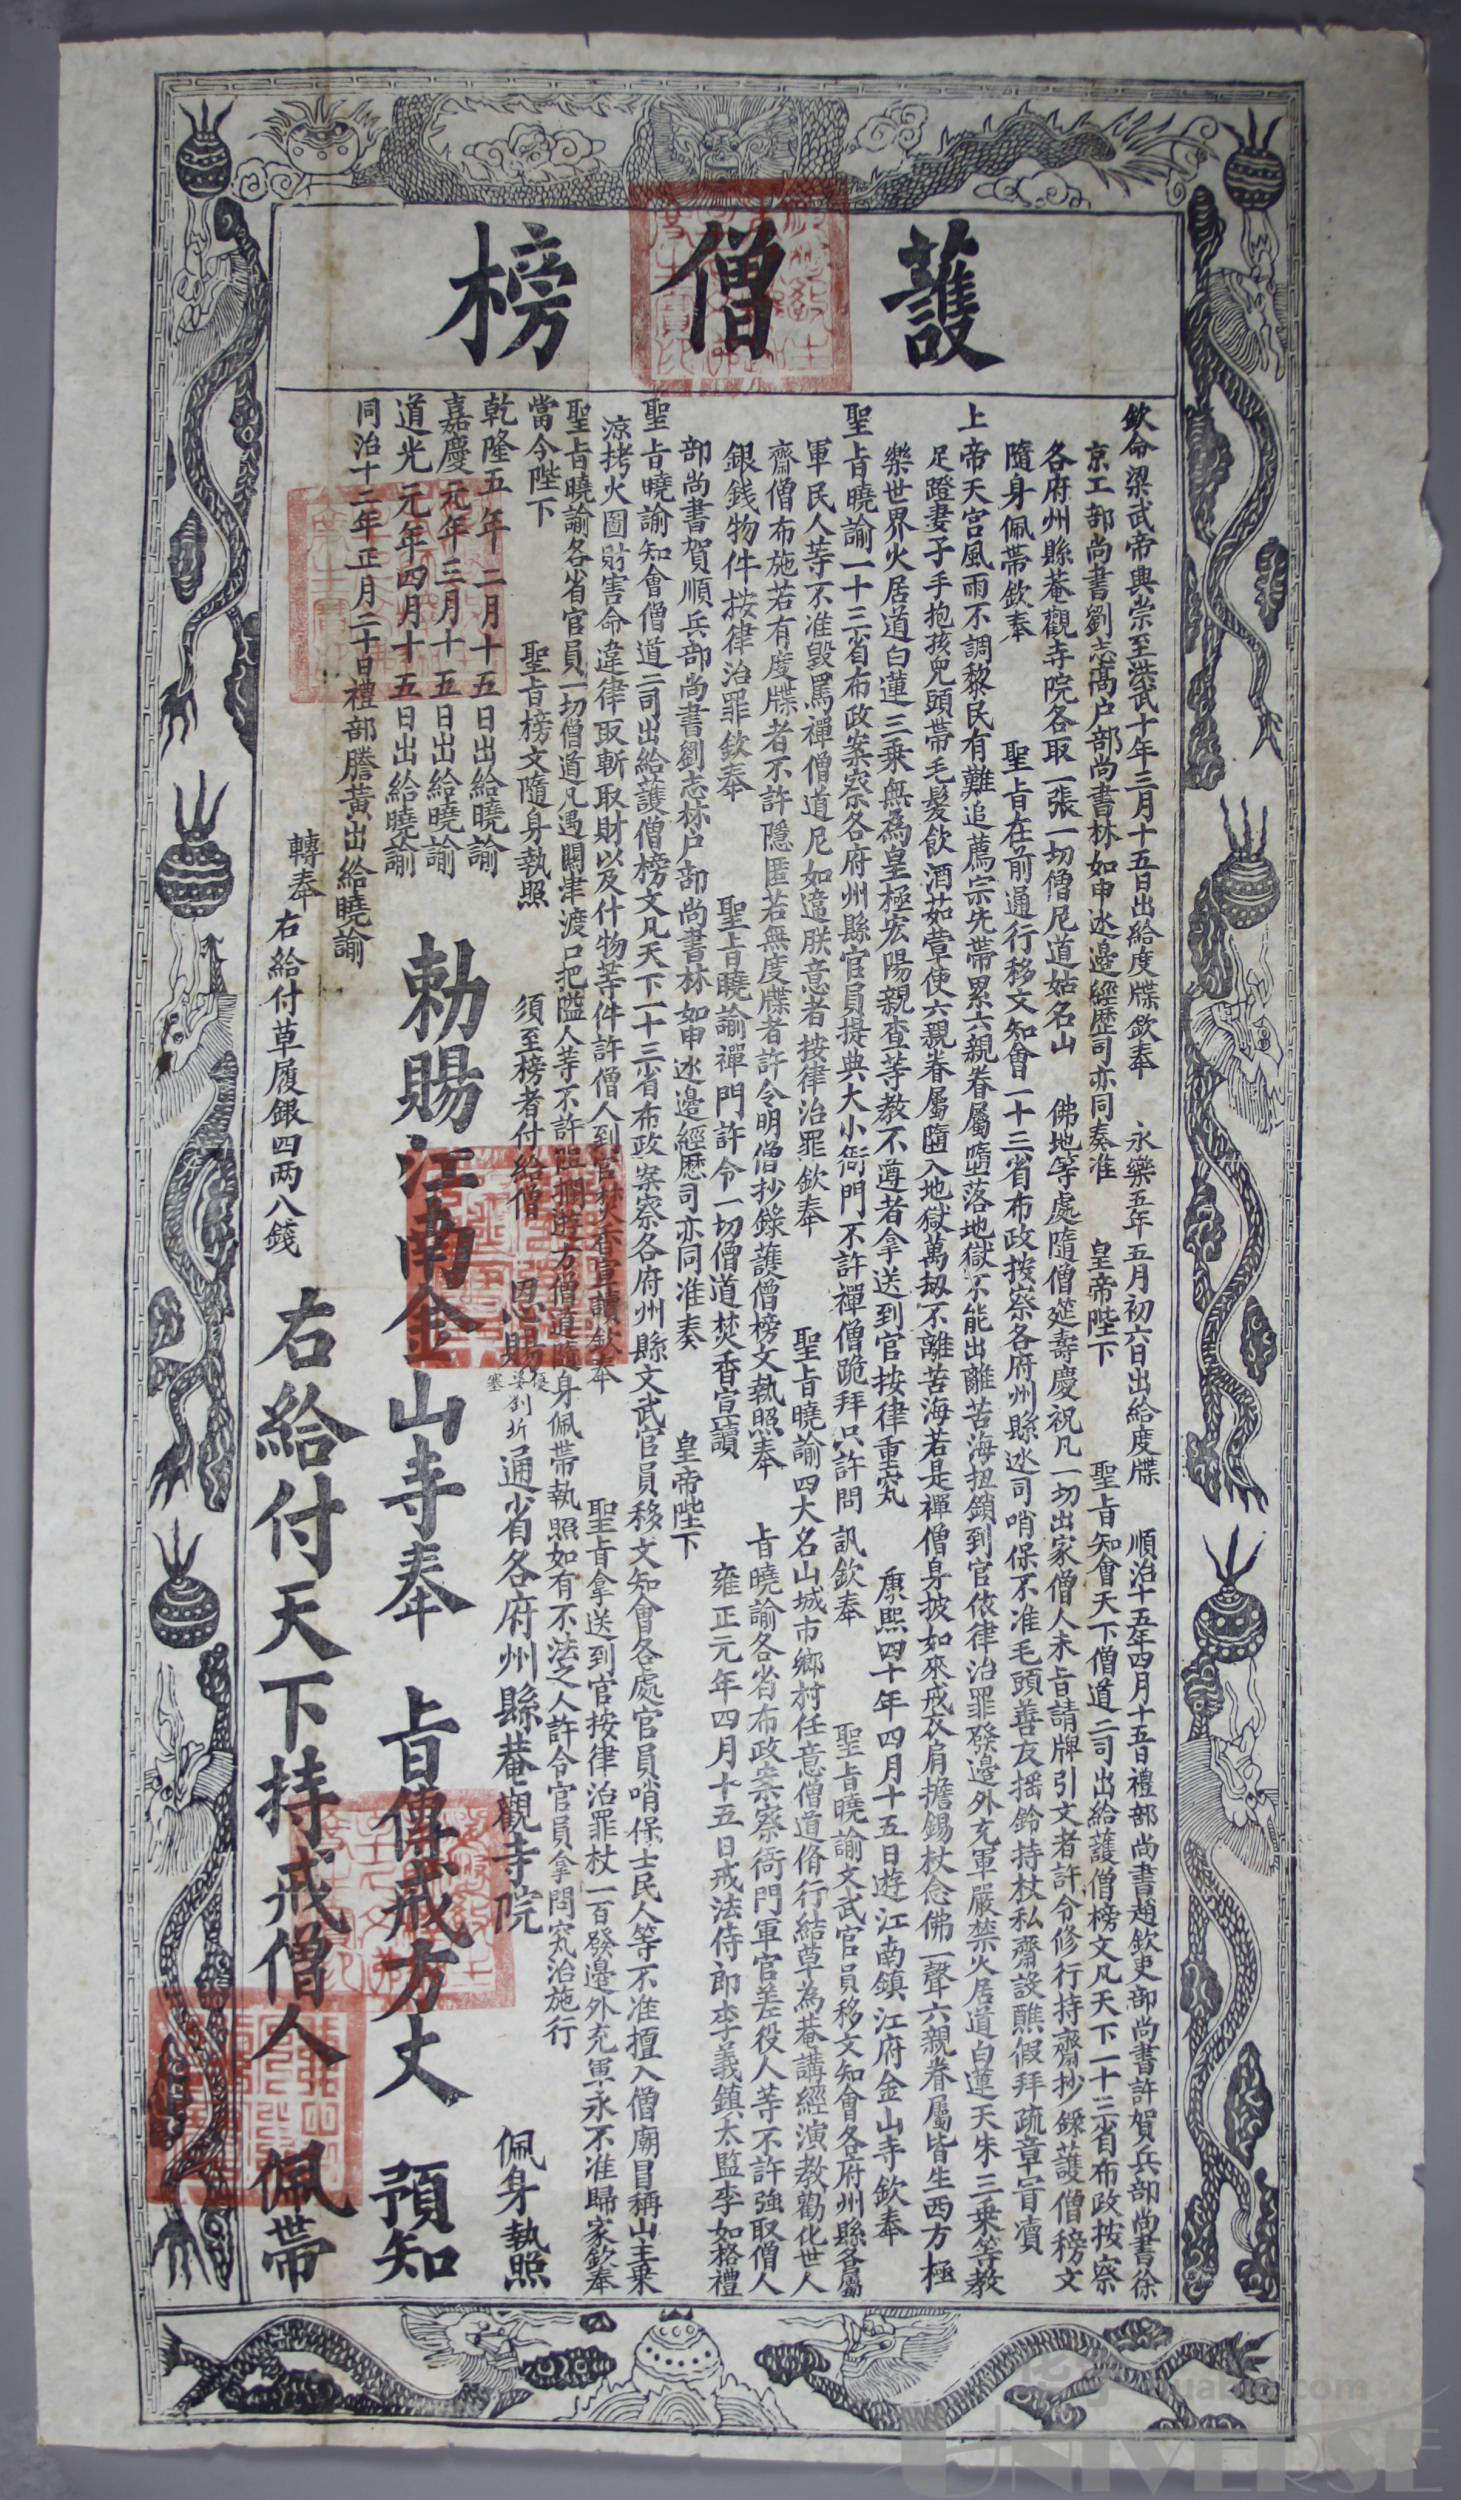 護僧榜
欽命梁武帝典崇至洪武十年三月十五日出給度牒欽奉　永樂五年五月初六日出給度牒　順治十五年四月十五日禮部尚書趙欽吏部尚書許賀兵部尚書徐
京工部尚書劉志高户部尚書林如申冰邊經歷司亦同奏准　皇帝陛下　聖旨知會天下僧道二司出給護僧榜文凡天下一十三省布政按察
各府州縣菴觀寺院各取一張一切僧尼道姑名山　佛地等處隨僧筵壽慶祝凡一切出家僧人未旨請牌引文者許令修行持齋抄錄護僧榜文
隨身佩帶欽奉　聖旨在前通行移文知會一十三省布政按察各府州縣冰司哨保不准毛頭善友搖鈴持杖私齋設醮假拜疏章冒瀆
上帝天宫風雨不調黎民有難追薦宗先帶累六親眷屬墮落地獄不能出離苦海扭鎖到官依律治罪發邊外充軍嚴禁火居道白蓮天朱三乘等教
足蹬妻子手抱孩兒頭帶毛髮飲酒茹葷使六親眷屬墮入地獄萬劫不離苦海若是禪僧身披如來戒衣肩擔錫杖念佛一聲六親眷屬皆生西方極
樂世界火居道白蓮三乘無為皇極宏陽親查等教不遵者拿送到官按律重究　康熙四十年四月十五日遊江南鎮江府金山寺欽奉
聖旨曉諭一十三省布政案察各府州縣官員提典大小衙門不許禪僧跪拜只許問訊欽奉　聖旨曉諭文武官員移文知會各府州縣各屬
軍民人等不准毀罵禪僧道尼如違朕意者按律治罪欽奉　聖旨曉諭四大名山城市鄉村任意僧道脩行結草為菴講經演教勸化世人
齋僧布施若有度牒者不許隱匿若無度牒者許令明僧抄錄護僧榜文執照奉　旨曉諭各省布政案察衙門軍官差役人等不許強取僧人
銀錢物件按律治罪欽奉　聖旨曉諭禪門許令一切僧道焚香宣讀　雍正元年四月十五日戒法侍郎李義鎮太監李如格禮
部尚書賀順兵部尚書劉志林户部尚書林如申冰邊經歷司亦同准奏　皇帝陛下
聖旨曉諭知會僧道二司出給護僧榜文凡天下一十三省布政案察各府州縣文武官員移文知會各處官員哨保士民人等不准擅入僧廟冒稱山主棄
凉拷火圖財害命違律取斬取財以及什物等件許僧人到官焚香宣讀欽奉　聖旨拿送到官按律治罪杖一百發邊外充軍永不准歸家欽奉
聖旨曉諭各省官員一切僧道凡遇關津渡口把隘人等不許阻擋遊方僧道隨身佩帶執照如有不法之人許令官員拿問究治施行
當今陛下　聖旨榜文隨身執照　須至榜者付給僧　恩賜　通省各府州縣菴觀寺院　佩身執照
乾隆五年二月十五日出給曉諭
嘉慶元年三月十五日出給曉諭
道光元年四月十五日出給曉諭
同治十二年正月二十日禮部謄黃出給曉諭
勅賜江南金山寺奉　旨傳戒方丈　預知
轉奉
右給付草履銀四兩八錢
右給付天下持戒僧人　佩帶
UNIVERSE